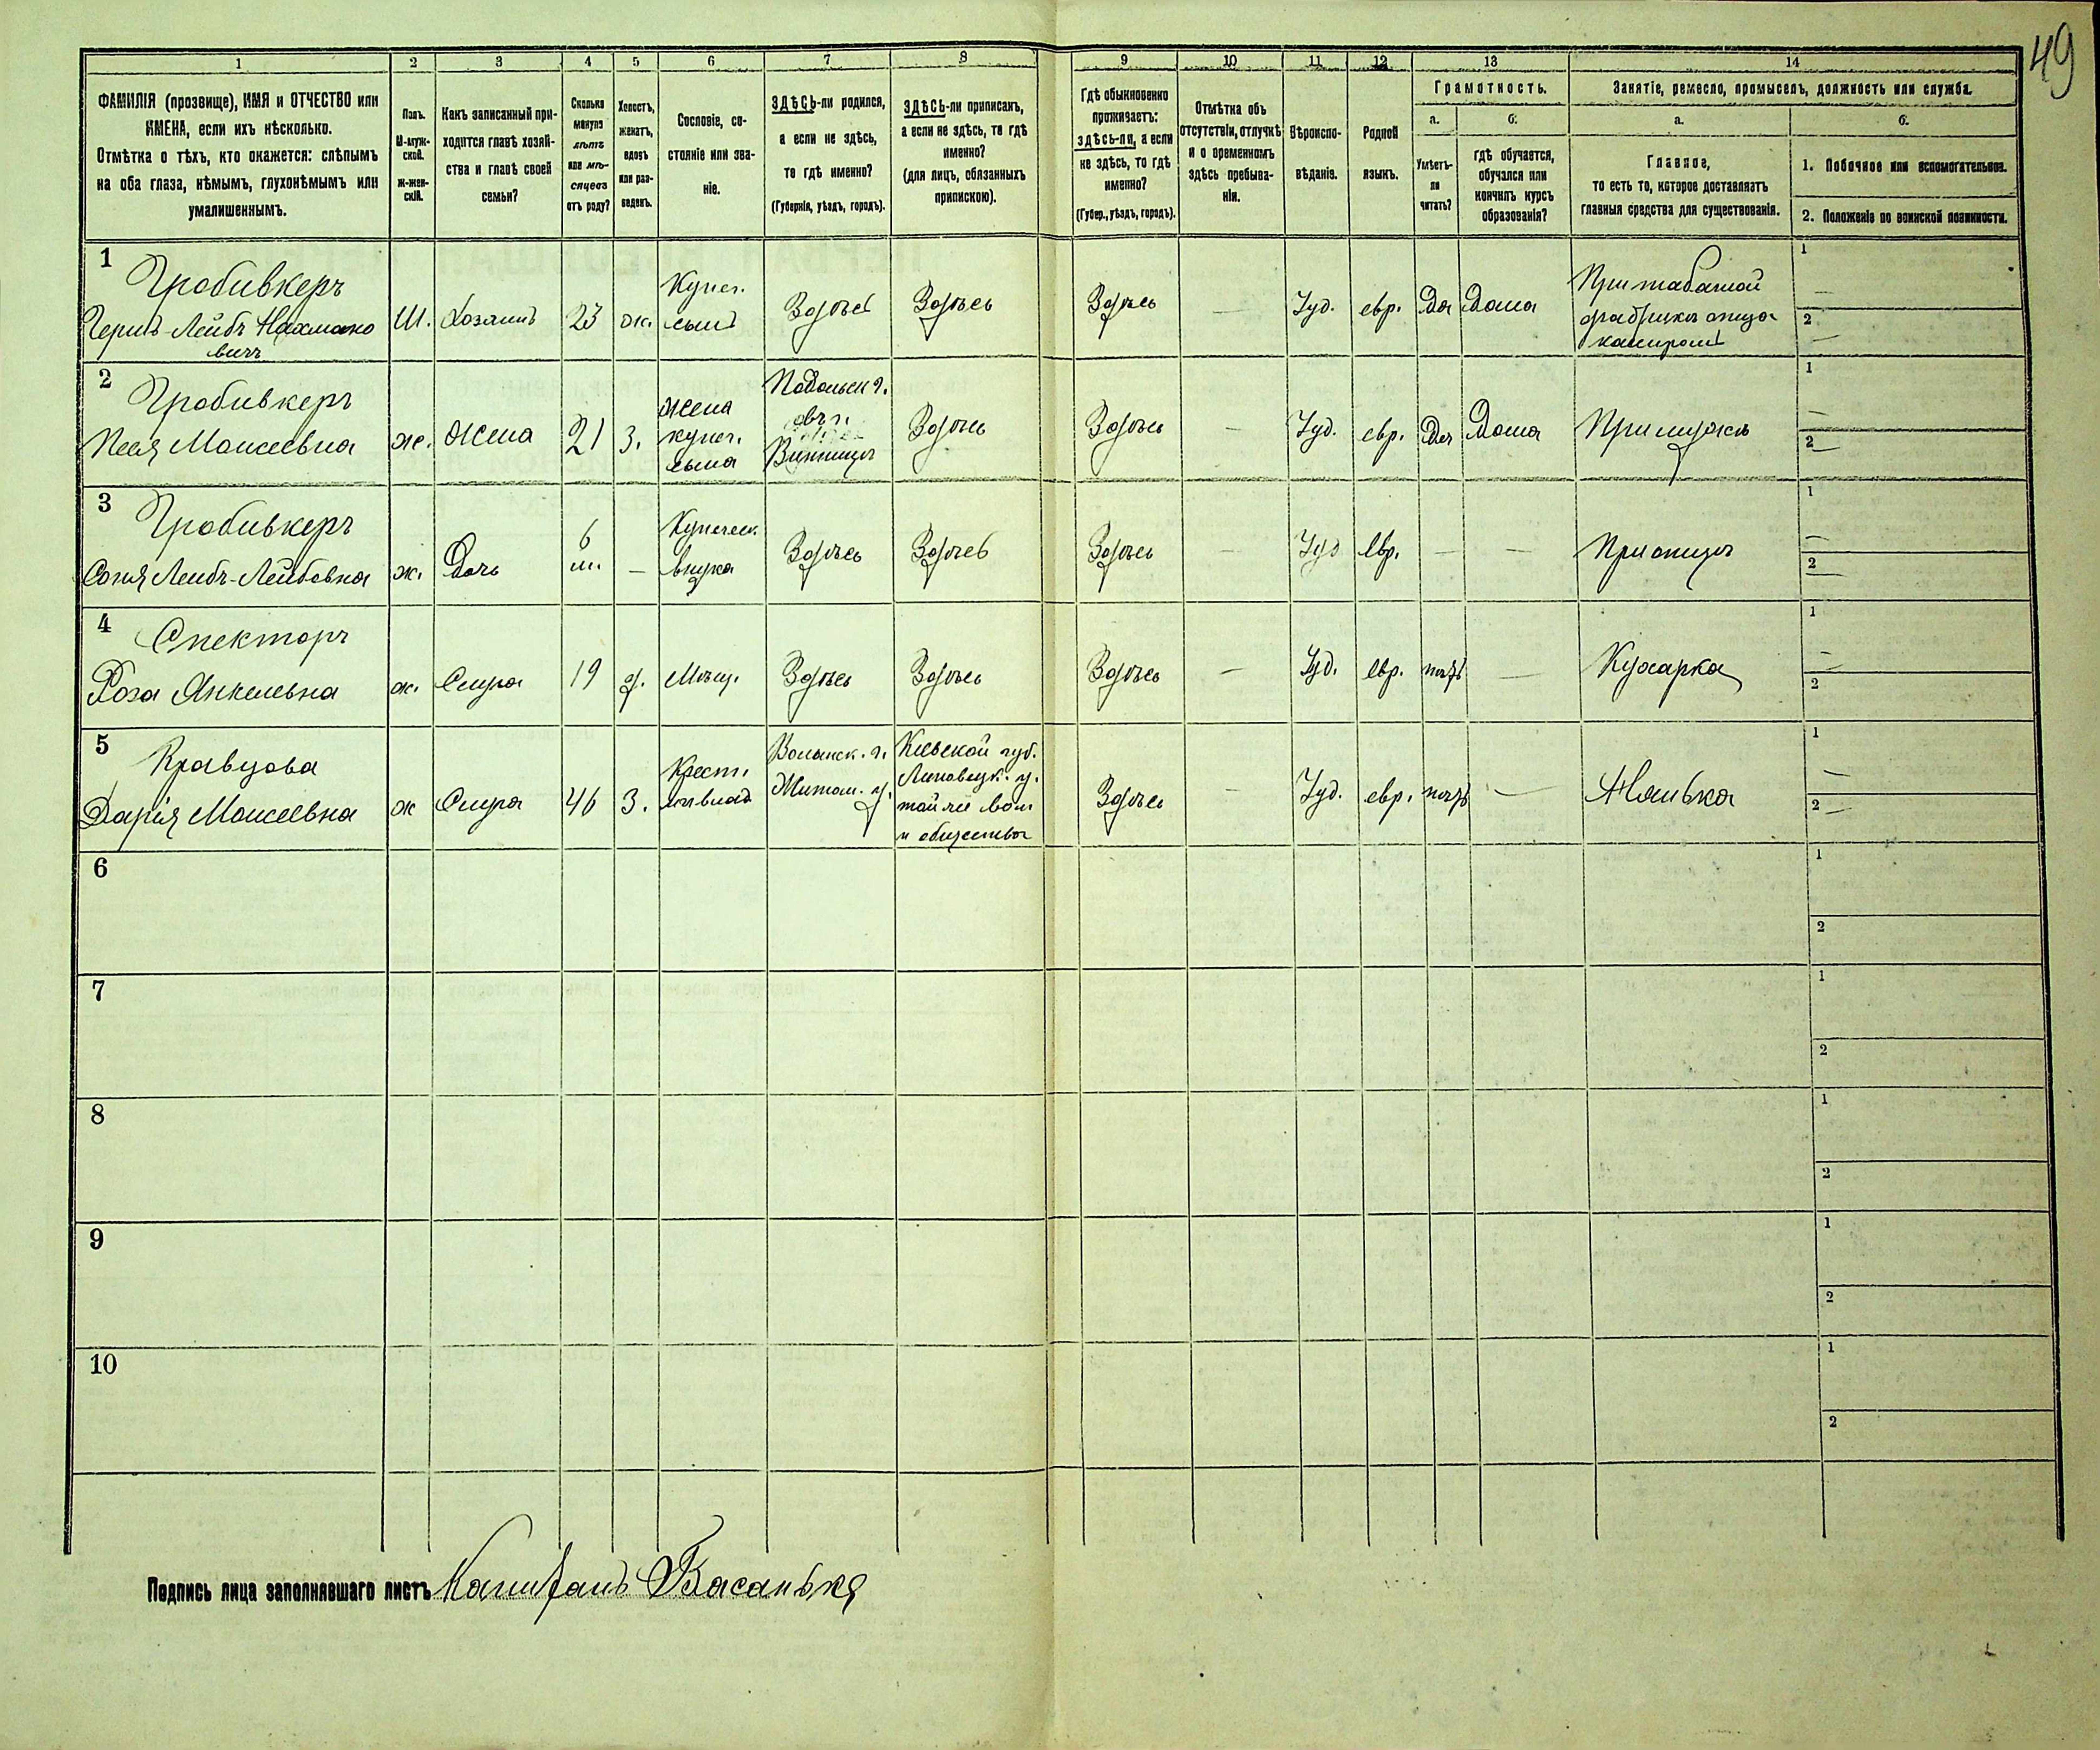 49
1 2 3 4 5 6 7 8 9 10 11 12 13 14
ФАМИЛІЯ (прозвище), ИМЯ и ОТЧЕСТВО или
ИМЕНА, если ихъ нѣсколько.
Отмѣтка о тѣхъ, кто окажется: слѣпымъ
на оба глаза, нѣмымъ, глухонѣмымъ или
умалишеннымъ.
Полъ.
М-муж-
ской.
ж-жен-
скій.
Какъ записанный при-
ходится главѣ хозяй-
ства и главѣ своей
семьи?
Сколько
минуло
лѣтъ
или мѣ-
сяцевъ
отъ роду?
Холостъ,
женатъ,
вдовъ
или раз-
веденъ.
Сословіе, со-
стояніе или зва-
ніе.
ЗДѢСЬ-ли родился,
а если не здѣсь,
то гдѣ именно?
(Губернія, уѣздъ, городъ).
ЗДѢСЬ-ли приписанъ,
а если не здѣсь, то гдѣ
именно?
(для лицъ, обязанныхъ
припискою).
Гдѣ обыкновенно
проживаетъ:
здѣсь-ли, а если
не здѣсь, то гдѣ
именно?
(Губер., уѣздъ, городъ).
Отмѣтка объ
отсутствіи, отлучкѣ
и о временномъ
здѣсь пребыва-
ніи.
Вѣроиспо-
вѣданіе.
Родной
языкъ.
Грамотность.
а.
Умѣетъ-
ли
читать?
б.
гдѣ обучается,
обучался или
кончилъ курсъ
образованія?
Занятіе, ремесло, промыселъ, должность или служба.
а.
Главное,
то есть то, которое доставляетъ
главныя средства для существованія.
б.
1. Побочное или вспомогательное.
2. Положеніе по воинской повинности.
1
Гробивкеръ
Гершъ-Лейбъ Нахмано
вичъ
М. Хозяинъ 23 ж.
Купеч.
сынъ
Здѣсь Здѣсь Здѣсь — Іуд. евр. Да Дома
При табачной
фабрикѣ отца
кассиромъ
1 —
2 —
2
Гробивкеръ
Песя Моисеевна
ж. Жена 21 з.
жена
купеч.
сына
Подольск г.
Винница
Здѣсь Здѣсь — Іуд. евр. Да Дома При мужѣ
1 —
2 —
3
Гробивкеръ
Соня Лейбъ-Лейбовна
ж. Дочь
6
м.
—
Купеческ.
внучка
Здѣсь Здѣсь Здѣсь — Іуд евр. — — При отцѣ
1 —
2 —
4
Спекторъ
Роза Янкелевна
ж. Слуга 19 д. Мѣщ. Здѣсь Здѣсь Здѣсь — Іуд. евр. нѣтъ — Кухарка
1 —
2
5
Кравцова
Дарія Моисеевна
ж Слуга 46 з.
Крест.
Волынск. г.
Житом. у.
Кіевской губ.
Липовецк. у.
и общества
Здѣсь — Іуд. евр. нѣтъ — Нянька
1 —
2 —
6
1
2
7
1
2
8
1
2
9
1
2
10
1
2
Подпись лица заполнявшаго листъ Капитанъ Басанько